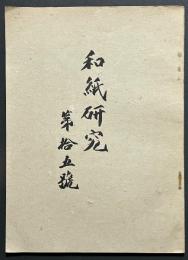 和紙研究
第拾五號